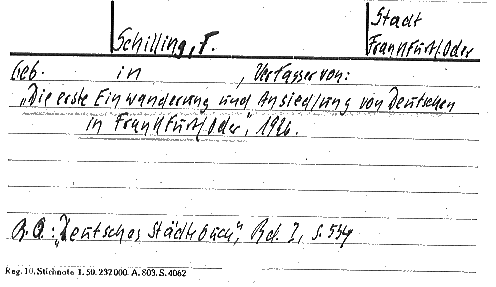 Schilling, F.
Stadt
Frankfurt/Oder
Geb. in , Verfasser von:
„Die erste Einwanderung und Ansiedlung von Deutschen
in Frankfurt/Oder“, 1926.
B.Q.: „Deutsches Städtebuch“, Bd. I, S. 534
Reg. 10, Stichnote 1. 50. 232000. A. 803. S. 4062